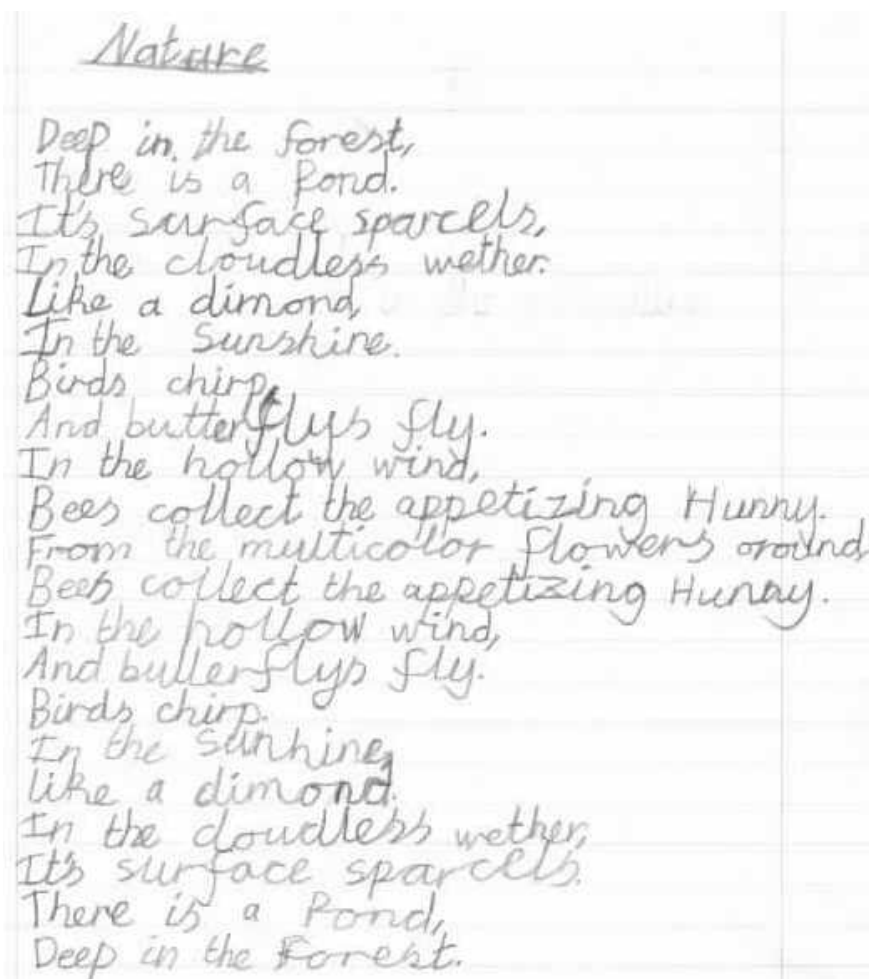 Nature
Deep in the forest,
There is a Pond.
It's surface sparcels,
In the cloudless wether.
Like a dimond,
In the Sunshine.
Birds chirp,
And butterflys fly.
In the hollow wind,
Bees collect the appetizing Hunny.
From the multicolor flowers around,
Bees collect the appetizing Hunny.
In the hollow wind,
And butterflys fly.
Birds chirp.
In the Sunhine,
like a dimond.
In the cloudless wether,
It's surface sparcels.
There is a Pond,
Deep in the Forest.